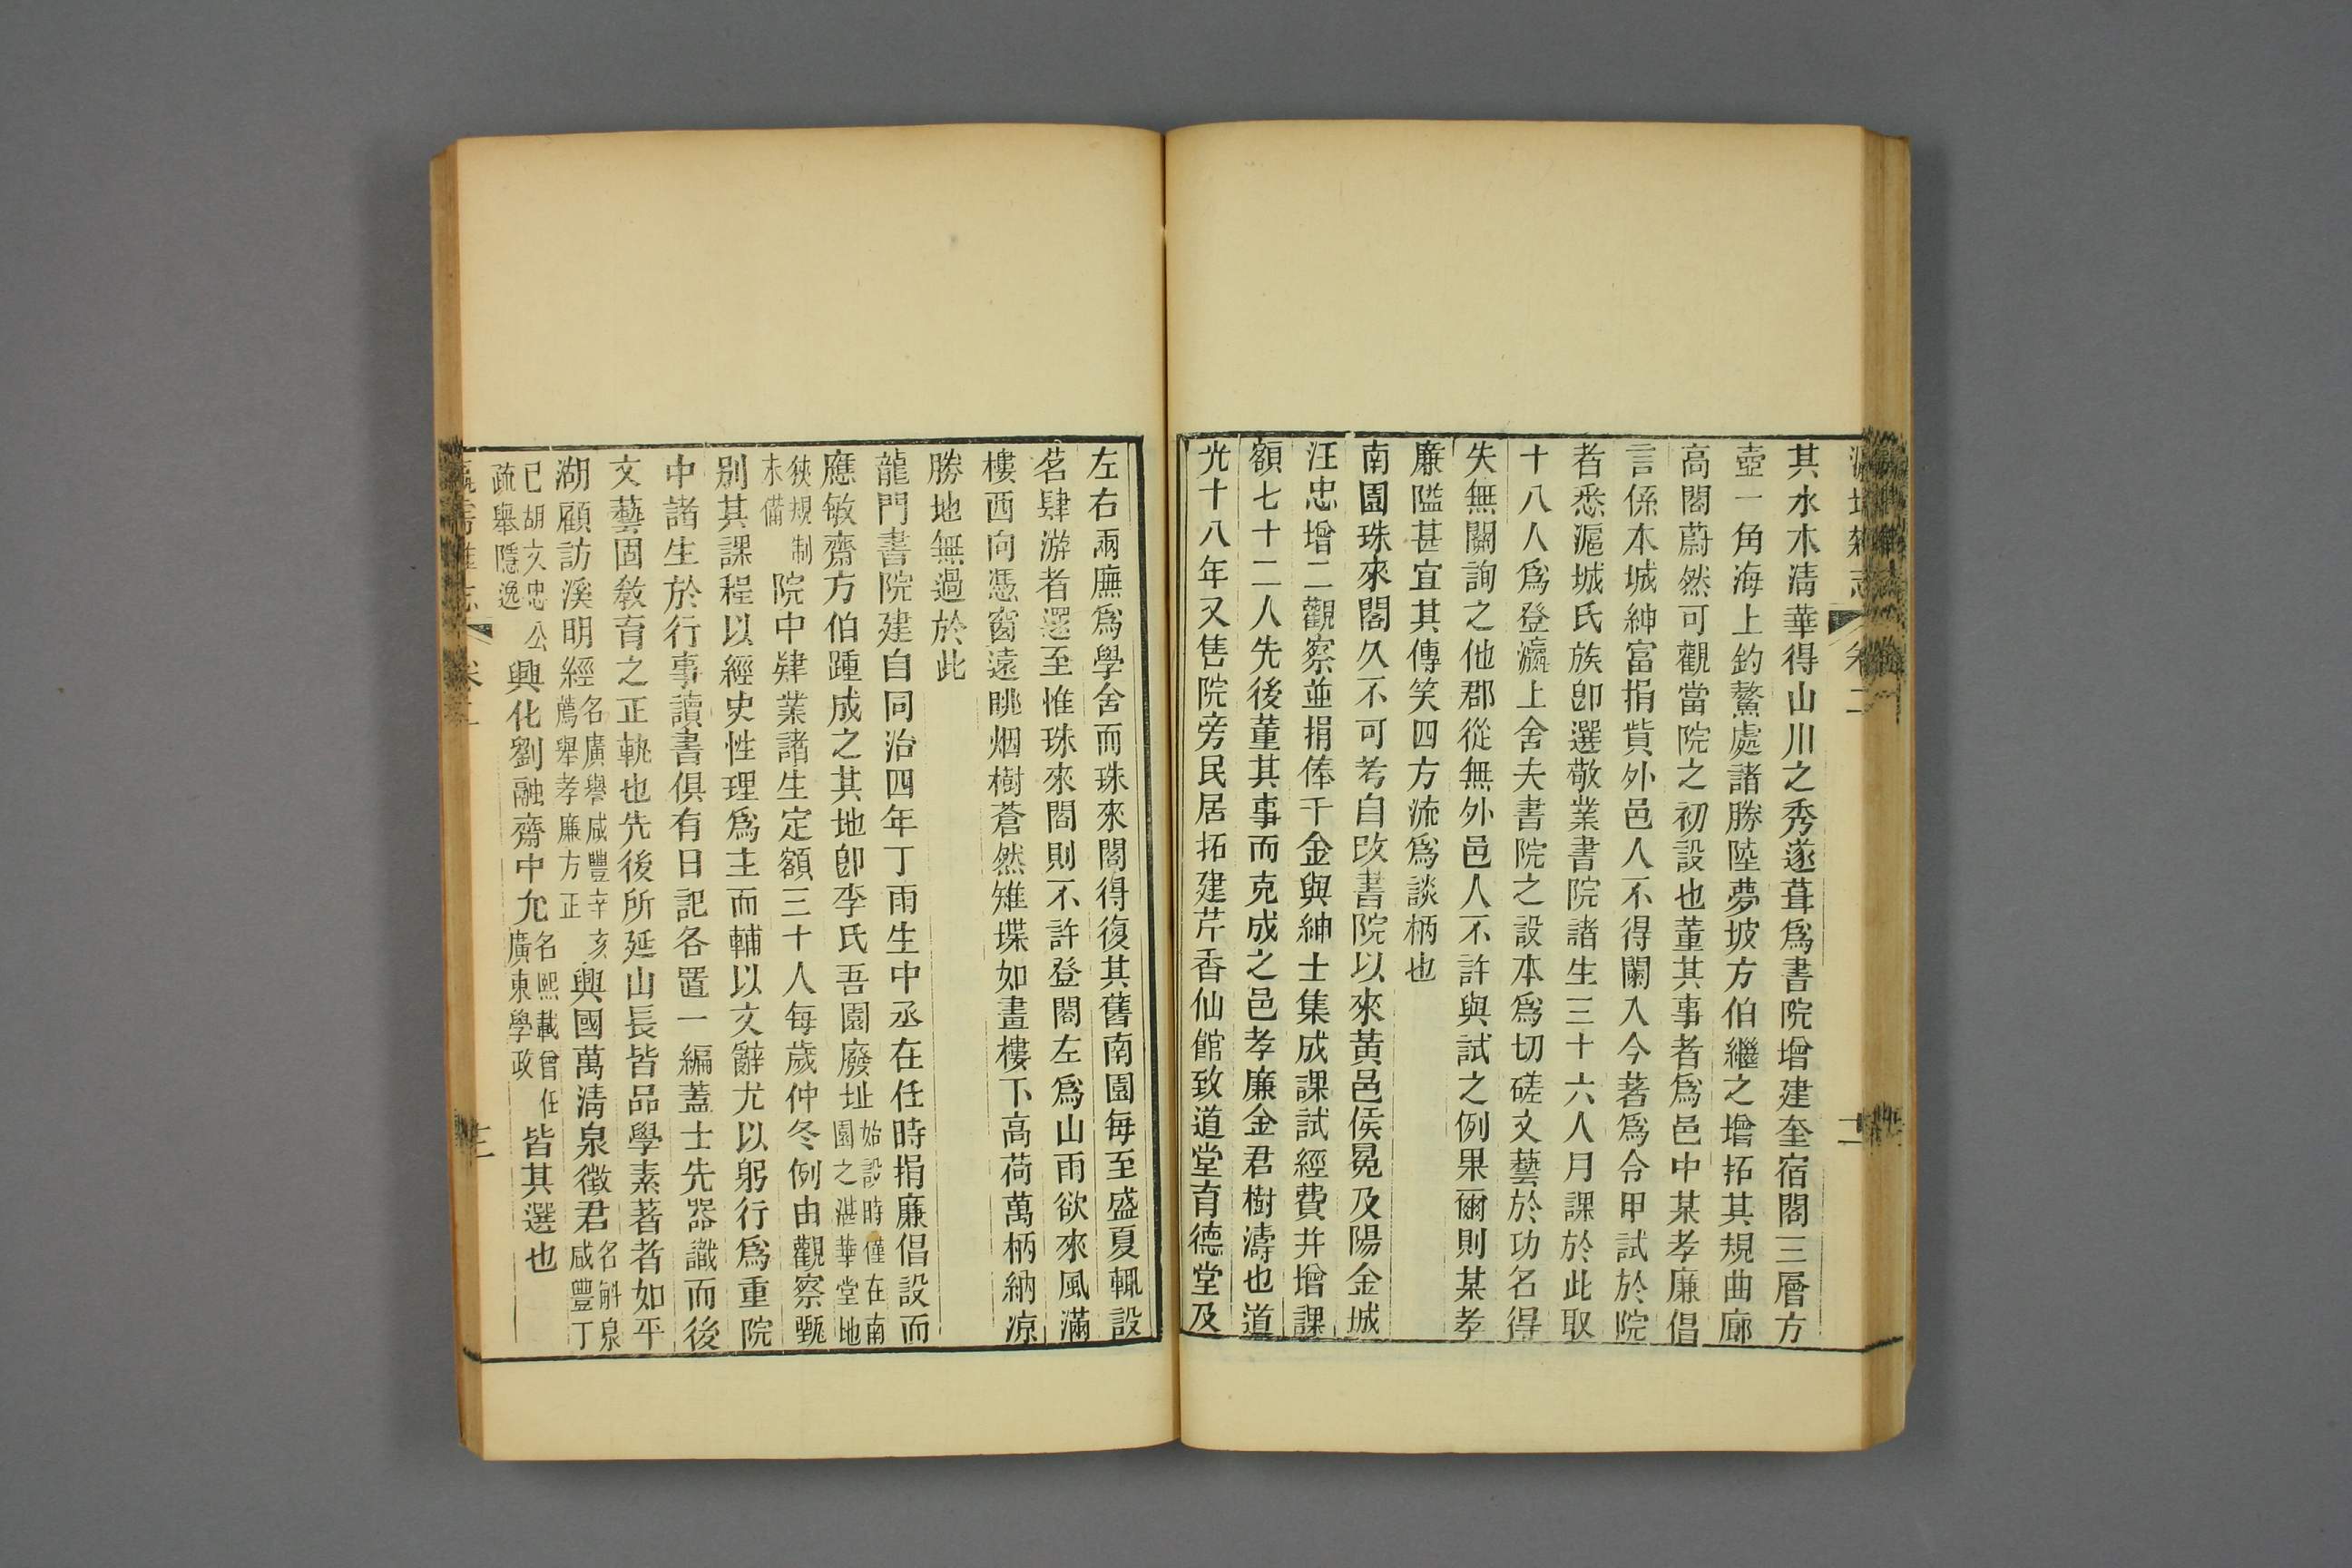 其水木清華得山川之秀遂葺爲書院增建奎宿閣三層方
壺一角海上釣鰲處諸勝陸夢坡方伯繼之增拓其規曲廊
高閣蔚然可觀當院之初設也董其事者爲邑中某孝廉倡
言係本城紳富捐貲外邑人不得闌入今著爲令甲試於院
者悉滬城氏族卽選敬業書院諸生三十六人月課於此取
十八人爲登瀛上舍夫書院之設本爲切磋文藝於功名得
失無關詢之他郡從無外邑人不許與試之例果爾則某孝
廉隘甚宜其傳笑四方流爲談柄也
南園珠來閣久不可考自改書院以來黃邑侯冕及陽金城
汪忠增二觀察並捐俸千金與紳士集成課試經費并增課
額七十二人先後董其事而克成之邑孝廉金君樹濤也道
光十八年又售院旁民居拓建芹香仙館致道堂育德堂及
左右兩廡爲學舍而珠來閣得復其舊南園每至盛夏輒設
茗肆游者遝至惟珠來閣則不許登閣左爲山雨欲來風滿
樓西向憑窗遠眺烟樹蒼然雉堞如畫樓下高荷萬柄納凉
勝地無過於此
龍門書院建自同治四年丁雨生中丞在任時捐廉倡設而
應敏齋方伯踵成之其地卽李氏吾園廢址始設時僅在南園之湛華堂地
狹規制未備院中肄業諸生定額三十人每歲仲冬例由觀察甄
別其課程以經史性理爲主而輔以文辭尤以躬行爲重院
中諸生於行事讀書俱有日記各置一編蓋士先器識而後
文藝固敎育之正軌也先後所延山長皆品學素著者如平
湖顧訪溪明經名廣譽咸豐辛亥薦舉孝廉方正興國萬清泉徵君名斛泉咸豐丁
巳胡文忠公疏舉隱逸興化劉融齋中允名熙載曾任廣東學政皆其選也
卷二
二
三